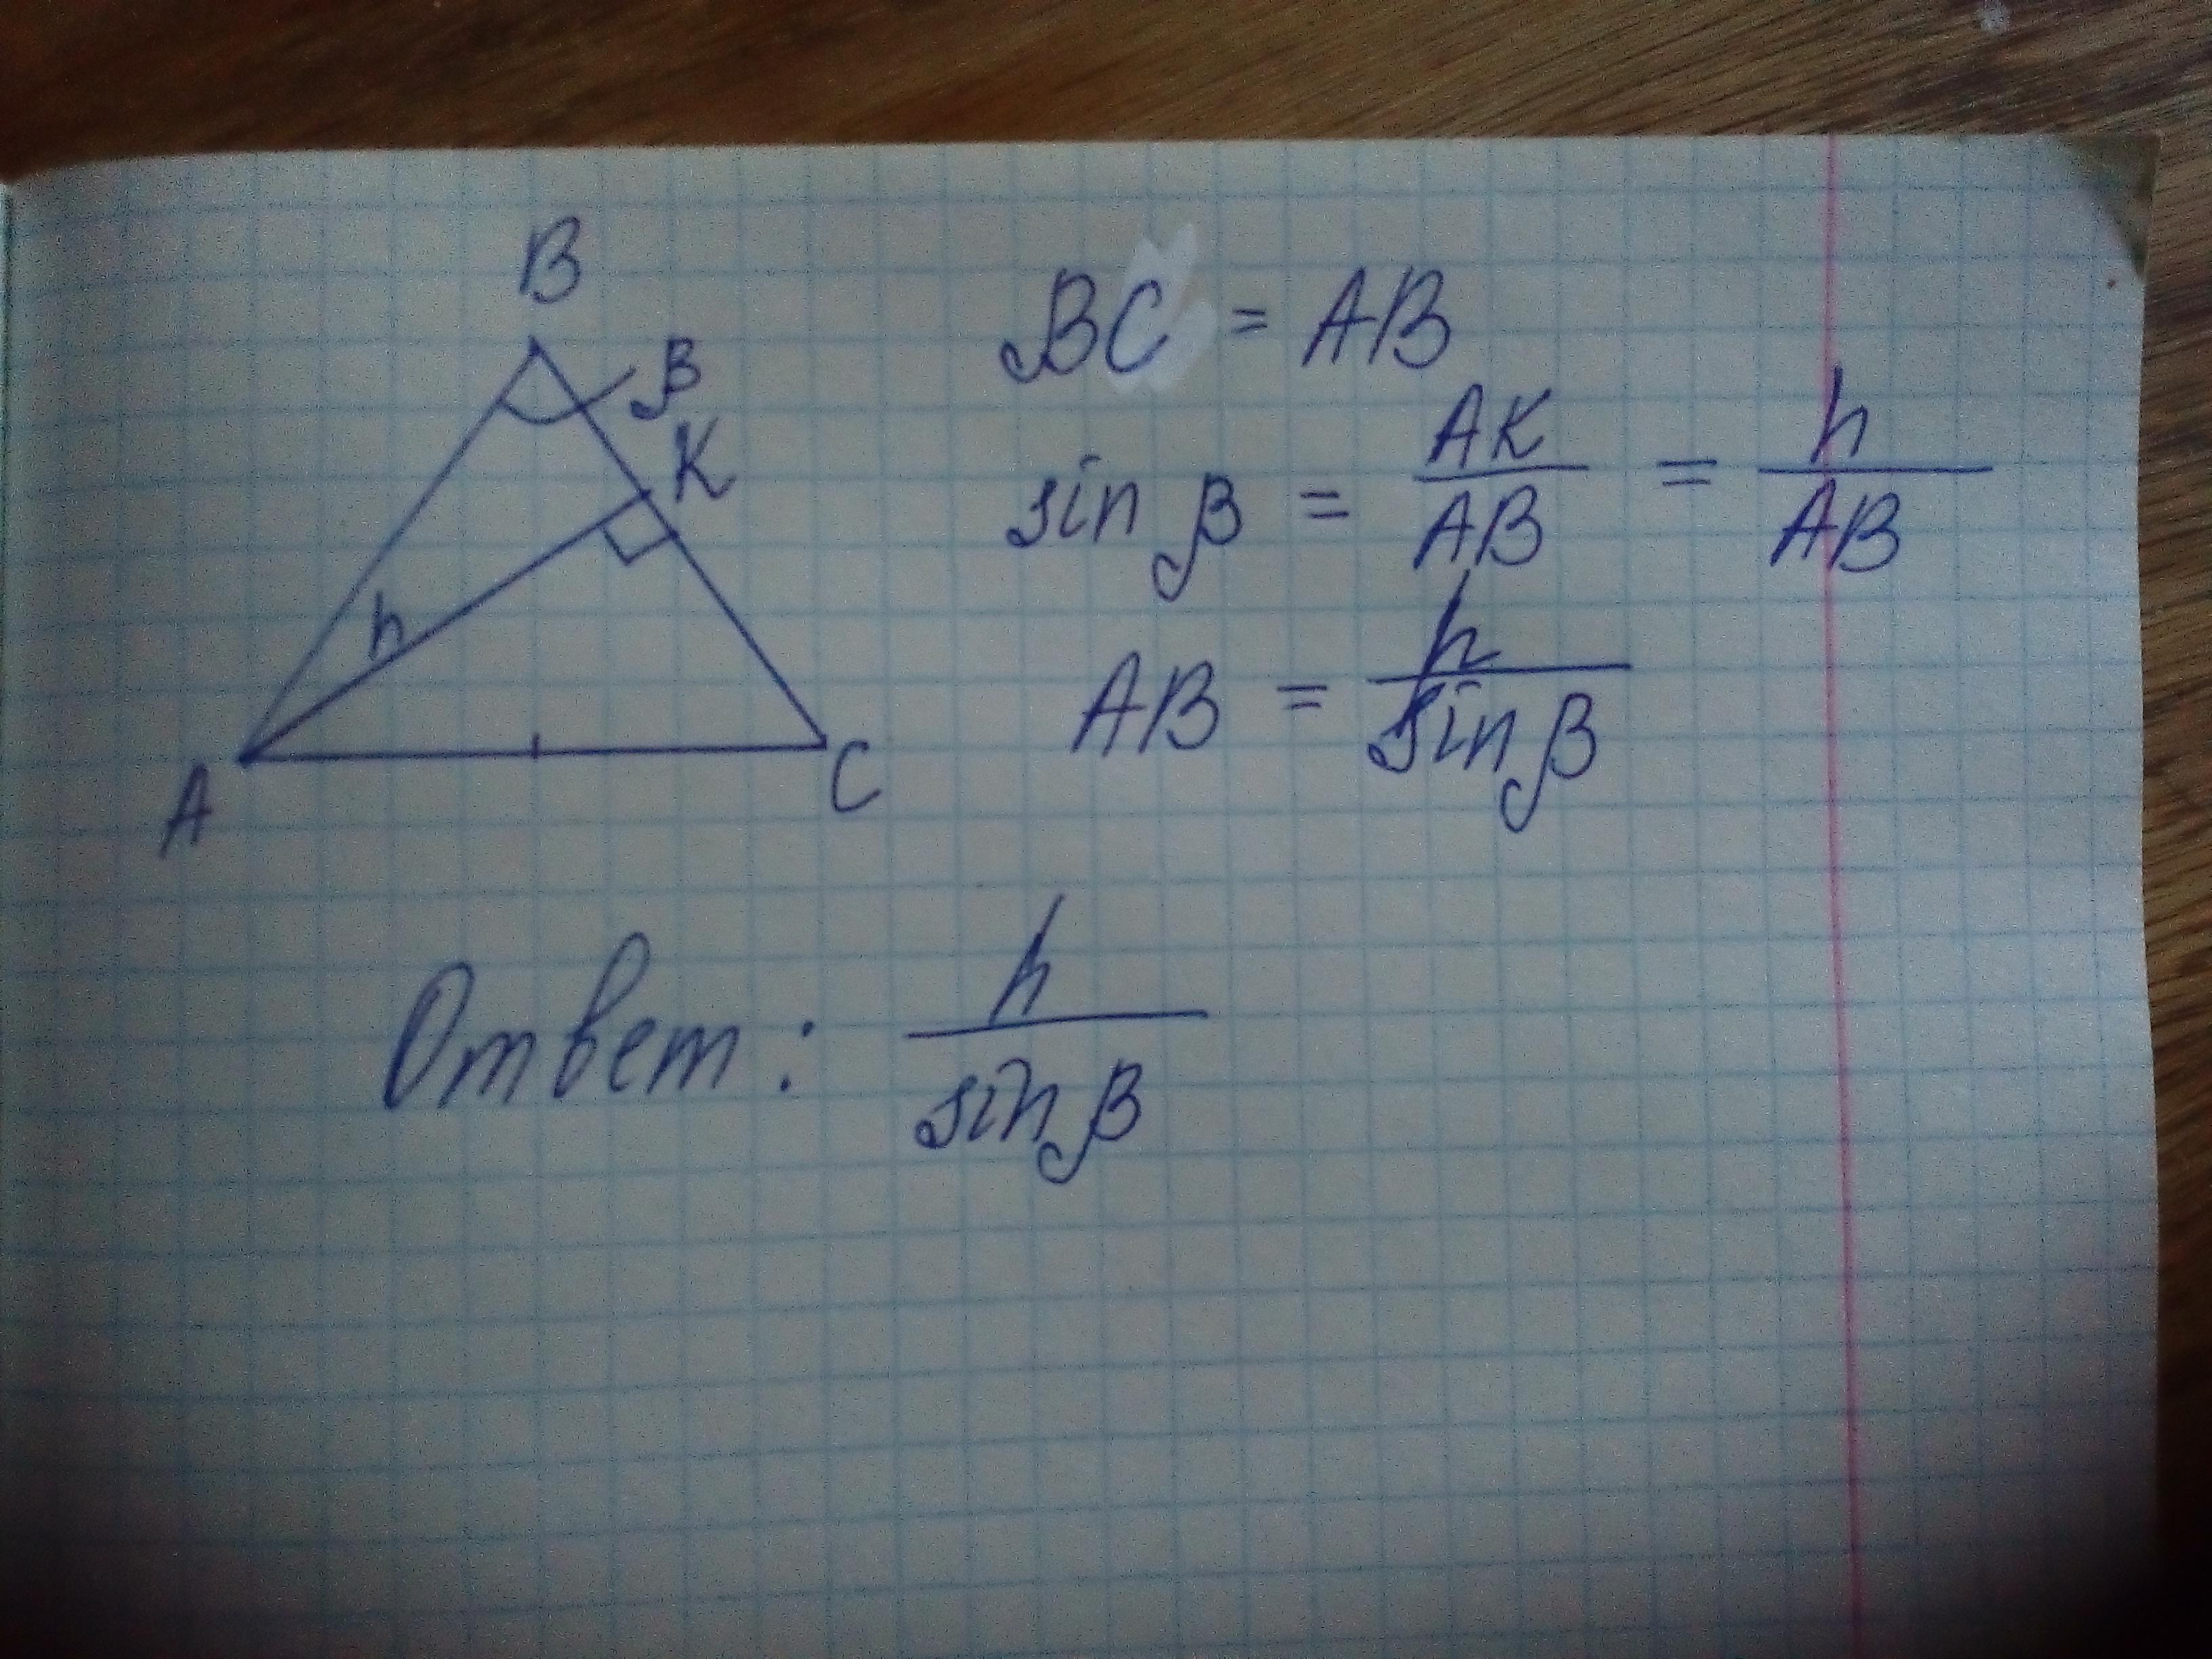 B
β
K
h
A
C
BC = AB
sin β = AK/AB = h/AB
AB = h/sin β
Ответ: h/sin β